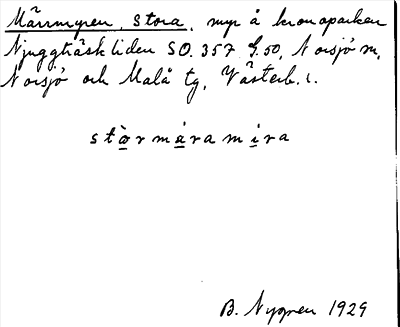 Märrmyren, Stora, myr å kronoparken
Njuggträskliden SO. 357 f. 50, Norsjö sn,
Norsjö och Malå tg, Västerb. l.
stòrmáramíra
B. Nygren 1929